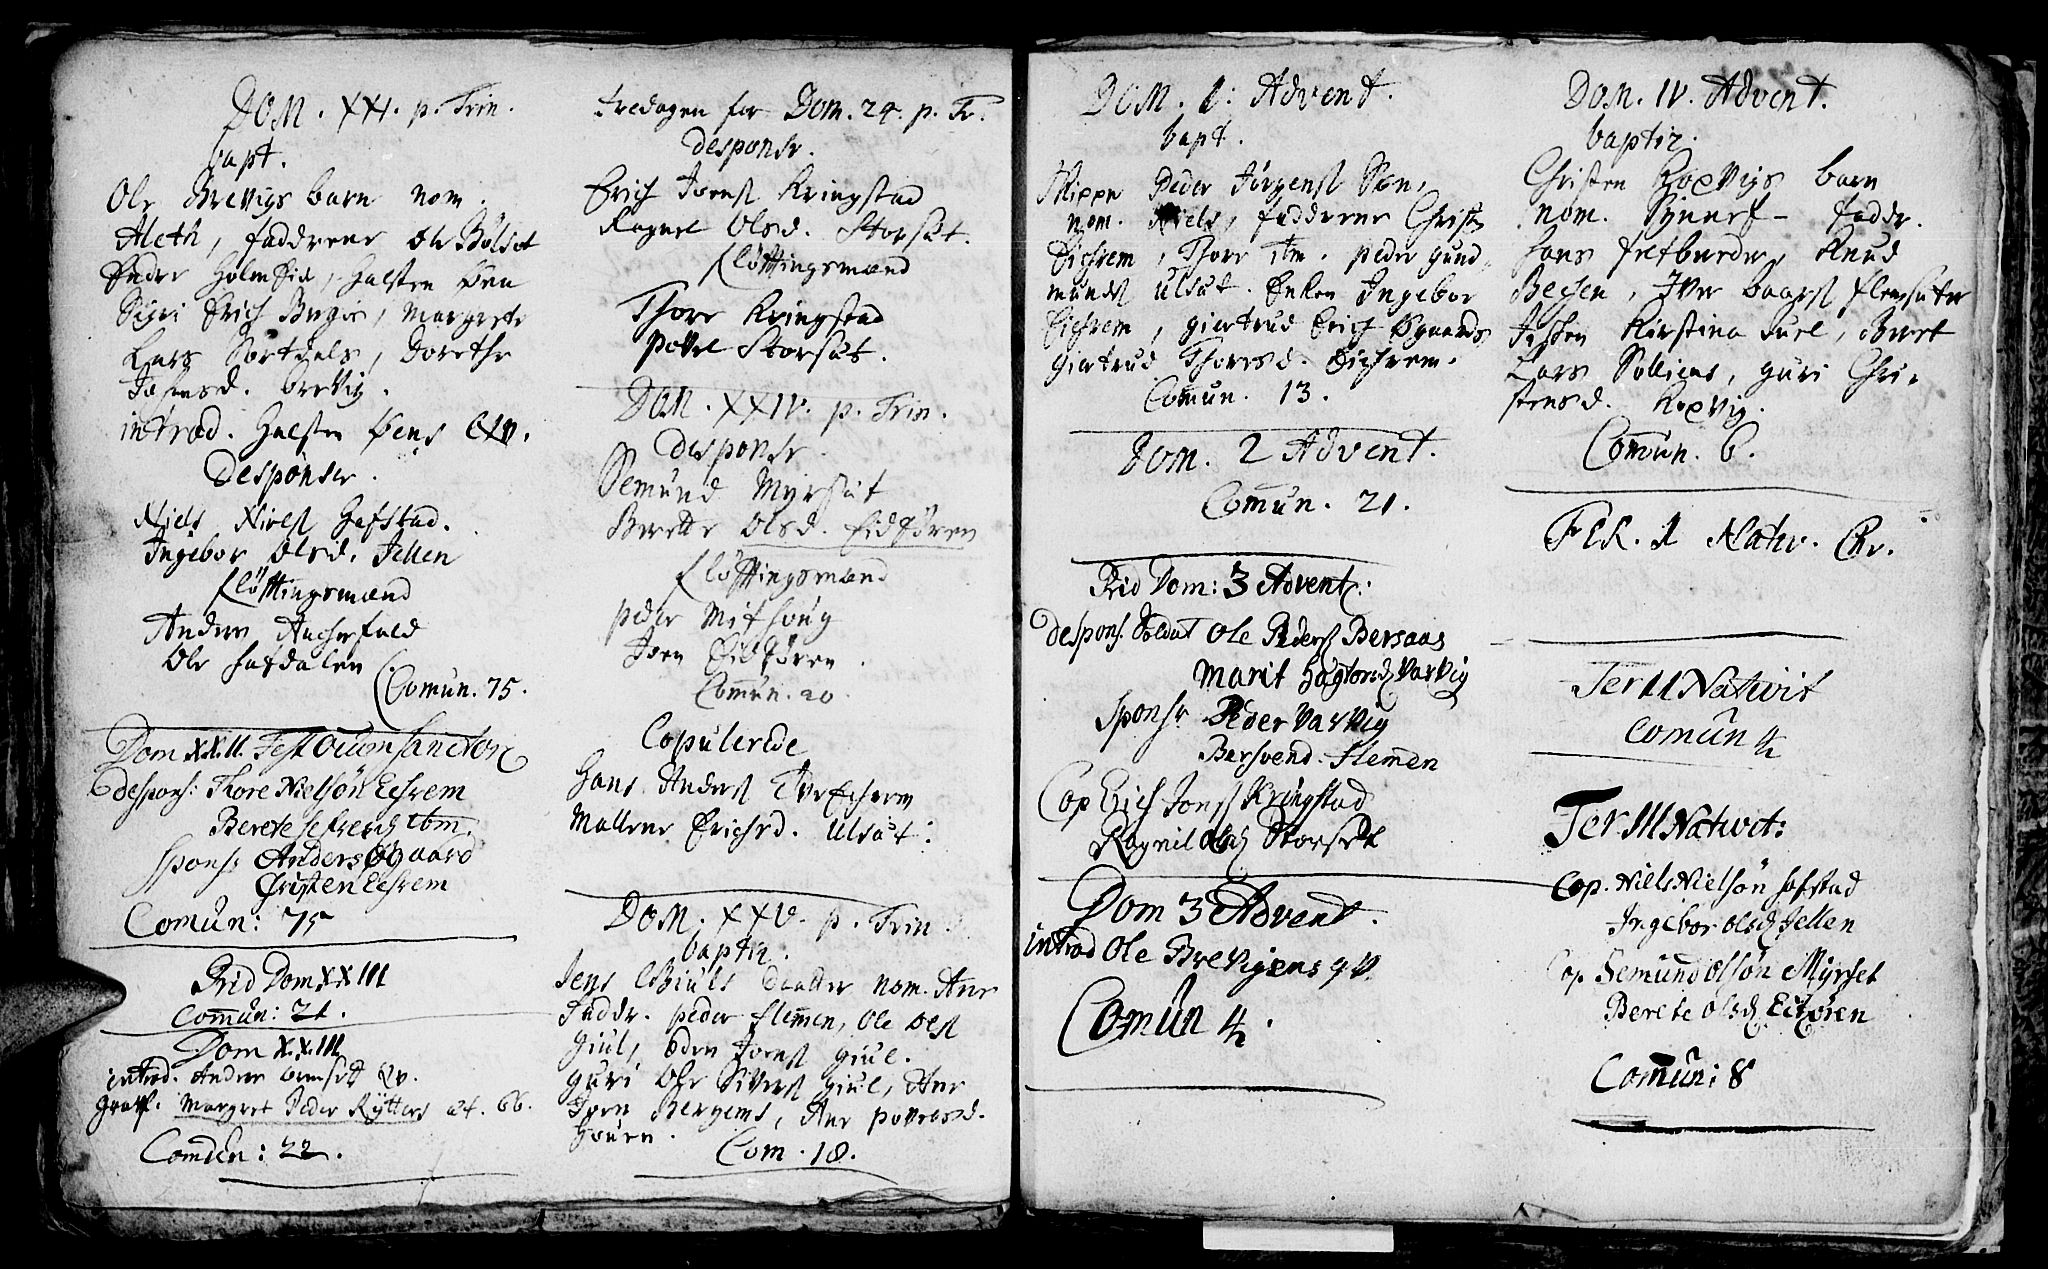 DOM. XXI. p. Trin.
bapt.
Ole Brevigs barn nom.
Aleth, faddrene Ole Bolset
Endre Holm Eid, Halsten Øen
Sigri Erich Bugie, Margrete
Lars Sortdals, Dorethe
Johansd. brevig.
introd. Halsten Øens
Desponser.
Niels Niels Hafstad.
Ingebor Olsd. Jellen
fløttingsmænd
Anders Aachersfald
Ole Hafdalen
Comun. 75.
Dom XXII. Fest Omn Sanctor
despons: Thore Nielsøn Echrem
Berete ibm.
Spons: Anders Øgaard
Christen Echrem
Comun: 75
Prid Dom XXIII
Comun: 21.
Dom XXIII
introd. Anders qv.
Margret Peder Rytters æt. 66.
Comun: 22.
fredagen for Dom. 24. p. Tr.
desponsr.
Erich Joens Kringstad
Ragnel Olsd. Storsæt.
fløttingsmænd
Thore Kringstad
Povel Storsæt.
DOM. XXIV. p. Trin.
desponsr.
Semund Myrsæt
Berette Olsd. Eidsøren
fløttingsmænd
peder Mifhoug
Joen Eidsøren.
Comun. 20.
Copulerede
Hans Anders Eichrem
Mallene Erichsd. Ulsæt.
DOM. XXV. p. Trin.
baptiz.
Jens Giuls daatter nom. Ane
Faddr. peder flemen, Ole Ols
Giul, Oden Joens Giul.
Guri Ole Sivers Giul, Ane
Joen Bergems, Ane povelsd.
Houen.
Com. 18.
DOM. 1. Advent.
bapt.
Skipper Peder Jørgens Søn,
nom. Niels, faddrene Christen
Eichrem, Thore ibm. peder Gund-
munds Ulsæt. Enken Ingebor
Eichrem, Giertrud Erich Øgaards
Giertrud Thoresd. Eichrem.
Comun. 13.
Dom. 2 Advent.
Comun. 21.
Prid Dom: 3 Advent:
despons. Soldat Ole Peders Bersaas
Marit Hagtorsd Varvig
Sponsr Peder Varvig
Barsvend Flemen
Cop Erich Jonss Kringstad
Ragnil Olsd Storset
Dom 3 Advent.
introd Ole Brevigens qv.
Comun 4.
DOM. IV. Advent.
baptiz.
Christen Roxvigs barn
nom. Synnef- faddr.
Hans Knud
Bechen, Iver baars flemsæter
Kirstina Juel, Beret
Lars Solliens, Guri Chri-
stensd. Roxvig.
Comun. 6.
Fer. 1 Nativ. Chr.
Fer II Nativit
Comun 4
Fer III Nativit:
Cop. Niels Nielsøn Hafstad
Ingebor Olsd Jellen
Cop Semund Olsøn Myrset
Berete Olsd Eitzøren
Comun: 8